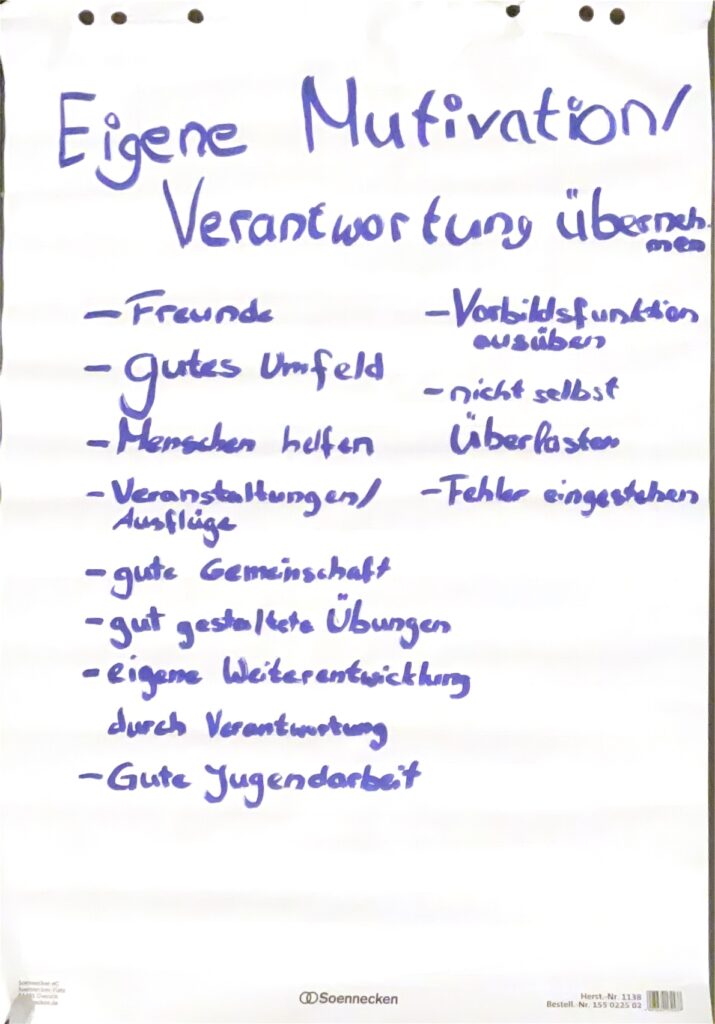 Eigene Mutivation/
Verantwortung überneh-
men
- Freunde
- gutes Umfeld
- Menschen helfen
- Veranstaltungen/
Ausflüge
- gute Gemeinschaft
- gut gestaltete Übungen
- eigene Weiterentwicklung
durch Verantwortung
- Gute Jugendarbeit
- Vorbildsfunktion
ausüben
- nicht selbst
Überlasten
- Fehler eingestehen
Soennecken eG
Soennecken
Herst.-Nr. 1138
Bestell.-Nr. 155 0225 02